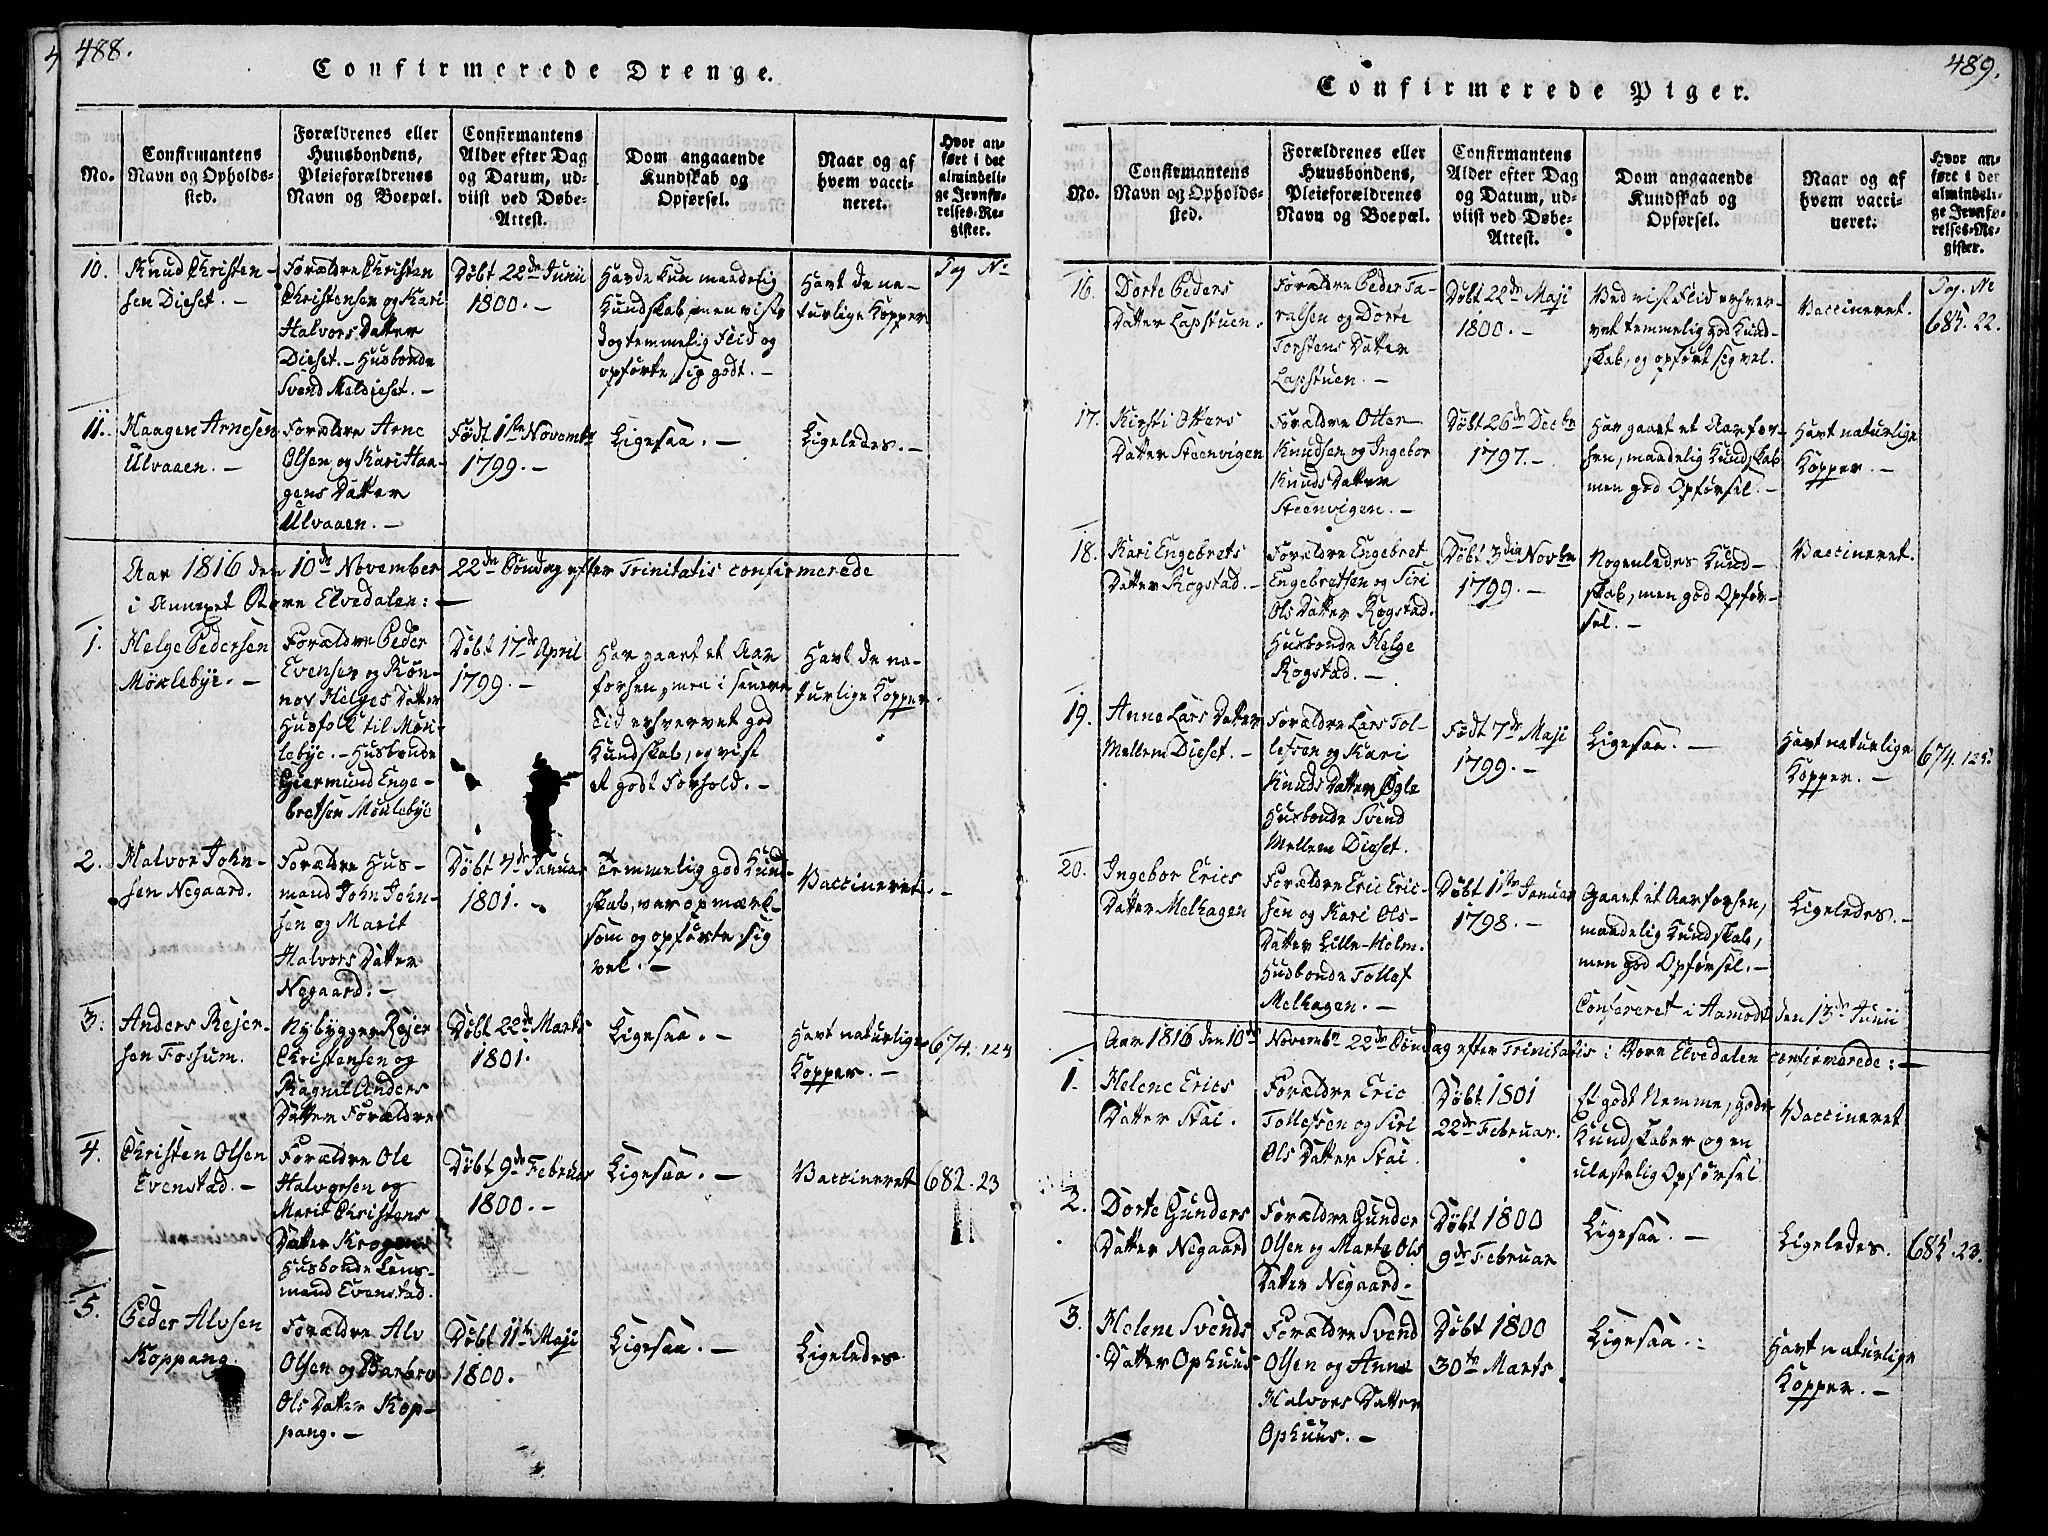 488.
Confirmerede Drenge.
No.
Confirmantens
Navn og Opholds-
sted.
Forældrenes eller
Huusbondens,
Pleieforældrenes
Navn og Boepæl.
Confirmantens
Alder efter Dag
og Datum, ud-
viist ved Døbe-
Attest.
Dom angaaende
Kundskab og
Opførsel.
Naar og af
hvem vacci-
neret.
Hvor an-
ført i det
almindeli-
ge Jevnfø-
relses-Re-
gister.
Pag No
10.
Knud Christen-
sen Dieset. -
Forældre Christen
Christensen og Kari
Halvors Datter
Dieset. - Husbonde
Svend Meldieset. -
Døbt 22de Junii
1800. -
Havde kun maadelig
Kundskab, men viste
dog temmelig Flid og
opførte sig godt. -
Havt de na-
turlige Kopper
11.
Haagen Arnesen
Ulvaaen. -
Forældre Arne
Olsen og Kari Haa-
gens Datter
Ulvaaen. -
Født 1ste Novembr
1799. -
Ligesaa. -
Ligeledes. -
Aar 1816 den 10de November 22de Søndag efter Trinitatis confirmerede
i Annexet Store Elvedalen: -
1.
Helge Pedersen
Møklebye. -
Forældre Peder
Evensen og Røn-
nov Helges Datter
Husfolk til Møk-
lebye. - Husbonde
Giermund Enge-
bretsen Møklebye
Døbt 17de April
1799. -
Har gaaet et Aar
forsen, men i senere
Tid erhvervet god
Kundskab, og vist
et godt Forhold. -
Havt de na-
turlige Kopper.
2.
Halvor John-
sen Negaard.
Forældre Hus-
mand John John-
sen og Marit
Halvors Datter
Negaard. -
Døbt 4de Januar
1801. -
Temmelig god Kund-
skab, var opmærk-
som og opførte sig
vel. -
Vaccineret. -
3.
Anders Rejer-
sen Fossum.
Nybygger Rejer
Christensen og
Ragnil Anders
Datter Forældre
Døbt 22de Marts
1801.
Ligesaa. -
Havt naturlige
Kopper. -
674. 124
4.
Christen Olsen
Evenstad. -
Forældre Ole
Halvorsen og
Marit Christens
Datter Krogen
Husbonde Lens-
mand Evenstad.
Døbt 9de Februar
1800. -
Ligesaa. -
Vaccineret
682. 23
5.
Peder Alvsen
Koppang
Forældre Alv
Olsen og Barbro
Ols Datter Kop-
pang. -
Døbt 11te Maji
1800.
Ligesaa. -
Ligeledes.
489.
Confirmerede Piger.
No.
Confirmantens
Navn og Opholds-
sted.
Forældrenes eller
Huusbondens,
Pleieforældrenes
Navn og Boepæl.
Confirmantens
Alder efter Dag
og Datum, ud-
viist ved Døbe-
Attest.
Dom angaaende
Kundskab og
Opførsel.
Naar og af
hvem vacci-
neret.
Hvor an-
ført i det
almindeli-
ge Jevnfø-
relses-Re-
gister.
Pag. No
16.
Dorte Peders
Datter Lapstuen.
Forældre Peder Ta-
ralsen og Dorte
Torstens Datter
Lapstuen. -
Døbt 22de Maji
1800. -
Ved vist Flid erhver-
vet temmelig god Kund-
skab, og opført sig vel.
Vaccineret.
685. 22.
17.
Kirsti Otters
Datter Steenvigen
Forældre Otter
Knudsen og Ingebor
Knuds Datter
Steenvigen. -
Døbt 26de Decbr
1797. -
Har gaaet et Aar for-
sen, maadelig Kundskab
men god Opførsel. -
Havt naturlige
Kopper. -
18.
Kari Engebrets
Datter Rogstad. -
Forældre Engebret
Engebretsen og Siri
Ols Datter Rogstad.
Husbonde Helge
Rogstad. -
Døbt 3die Novbr
1799. -
Nogenledes Kund-
skab, men god Opfør-
sel. -
Vaccineret.
19.
Anne Lars Datter
Mellem Dieset. -
Forældre Lars Tol-
lefsen og Kari
Knuds Datter Øgle
Husbonde Svend
Mellem Dieset.
Født 7de Maji
1799. -
Ligesaa. -
Havt naturlige
Kopper. -
674. 125.
20.
Ingebor Erics
Datter Melhagen
Forældre Eric Eric-
sen og Kari Ols-
Datter Lille-Holm.
Husbonde Tollef
Melhagen. -
Døbt 1ste Januar
1798. -
Gaaet et Aar forsen,
maadelig Kundskab,
men god Opførsel. -
Ligeledes. -
Confereret i Aamodt den 13de Junii
Aar 1816 den 10de Novembr 22de Søndag efter Trinitatis i Store Elvedalen confirmerede: -
1.
Helene Erics
Datter Stai.
Forældre Eric
Tollefsen og Siri
Ols Datter Stai.
Døbt 1801
22de Februar.
Et godt Nemme, gode
Kundskaber og en
ulastelig Opførsel
Vaccineret
2.
Dorte Gunders
Datter Negaard
Forældre Gunder
Olsen og Marte Ols
Datter Negaard. -
Døbt 1800
9de Februar
Ligesaa. -
Ligeledes.
685. 23.
3.
Helene Svends
Datter Ophuus
Forældre Svend
Olsen og Anne
Halvors Datter
Ophuus. -
Døbt 1800
30te Marts.
Ligesaa. -
Havt naturlige
Kopper. -